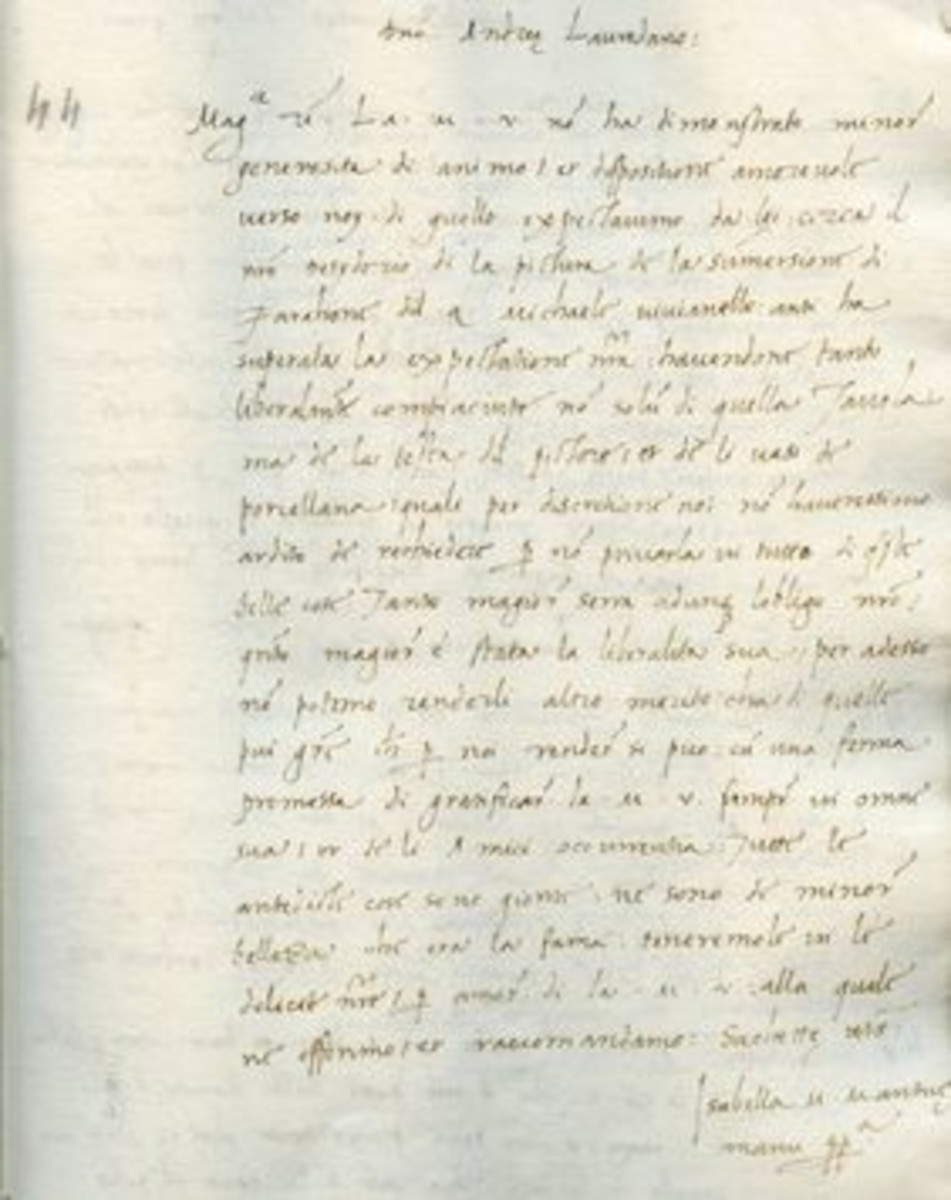 Dno Andreę Lauredano:
44
Mag.ca . La . M . V . nō ha dimonstrato minor
generosita di animo: et dispositione amorevole
verso noi di quello expectavamo da lei circa il
nrō desyderio di la pictura de la sumersione di
Pharahone dil q. Michaele Vivianello anti ha
superata la expectatione nrā: havendone tanto
liberalmēte compiaciuto nō solū di quella Tavola
ma de la testa dil pictore: et de li vasi de
porcellana: quali per discretione noi nō haveressimo
ardito de rechiedere p nō privarla in tutto di q̄ste
belle cose Tanto magior serra adunq; lobligo nrō:
q̄nto magior è stata la liberalita sua: per adesso
nō potemo renderli altro merito che di quelle
piu grē chē p noi render si puo: cū una ferma
promessa di gratificar la . M . V . sempr in omne
sua: et de li Amici occurrentia: Tutte le
antedicte cose sono gionte: ne sono de minor
bellezza che era la fama: teneremole in le
delicie nrē: p amor di la . M . V . alla quale
ne offerimo: et raccomandamo:
Isabella M Mantuę
manu pp.a